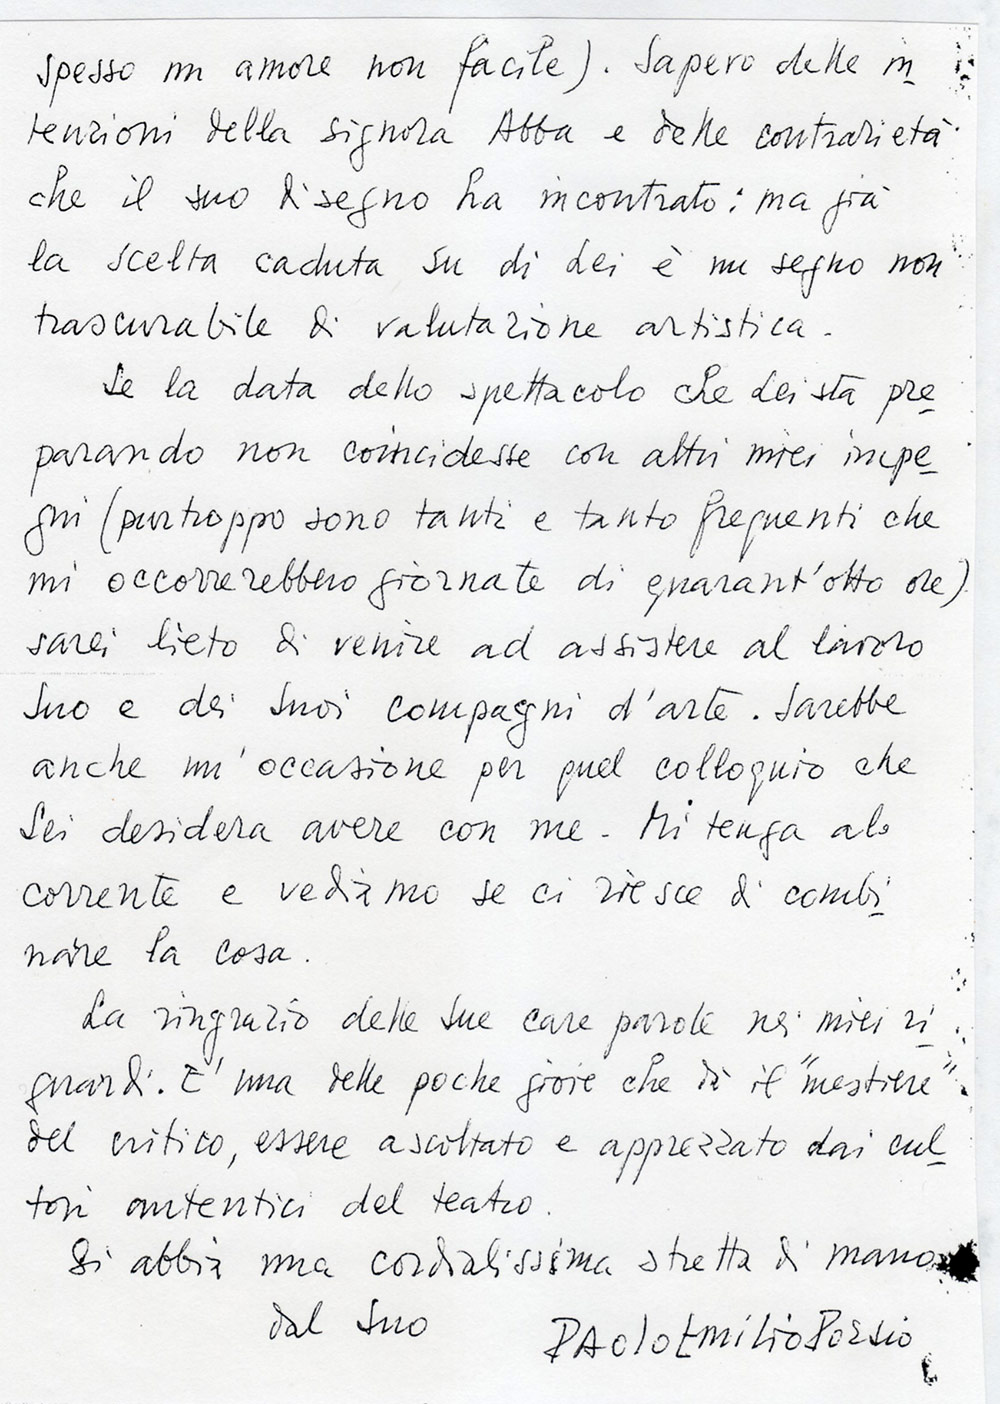 spesso un amore non facile). Sapevo delle in
tenzioni della signora Abba e delle contrarietà
che il suo disegno ha incontrato: ma già
la scelta caduta su di Lei è un segno non
trascurabile di valutazione artistica.
Se la data dello spettacolo che Lei sta pre
parando non coincidesse con altri miei impe
gni (purtroppo sono tanti e tanto frequenti che
mi occorrerebbero giornate di quarant'otto ore)
sarei lieto di venire ad assistere al lavoro
Suo e dei Suoi compagni d'arte. Sarebbe
anche un'occasione per quel colloquio che
Lei desidera avere con me. Mi tenga al
corrente e vediamo se ci riesce di combi
nare la cosa.
La ringrazio delle Sue care parole nei miei ri
guardi. E' una delle poche gioie che dà il "mestiere"
del critico, essere ascoltato e apprezzato dai cul
tori autentici del teatro.
Si abbia una cordialissima stretta di mano
dal Suo PAolo EmilioPoesio